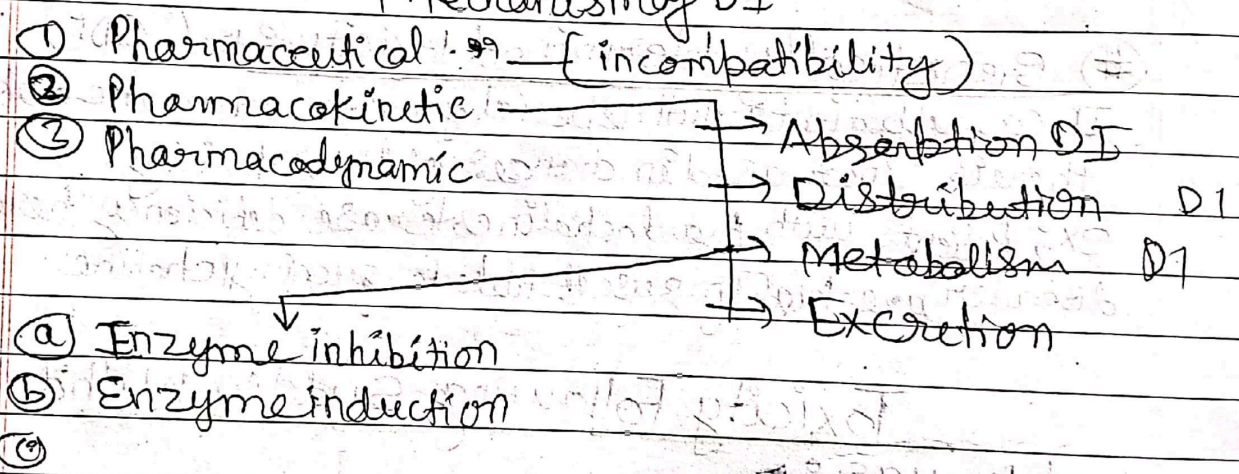 Mechanism of DI
① Pharmaceutical :- (incompatibility)
② Pharmacokinetic
→ Absorbtion DI
③ Pharmacodynamic
→ Distribution DI
→ Metabolism DI
→ Excretion
ⓐ Enzyme inhibition
ⓑ Enzyme induction